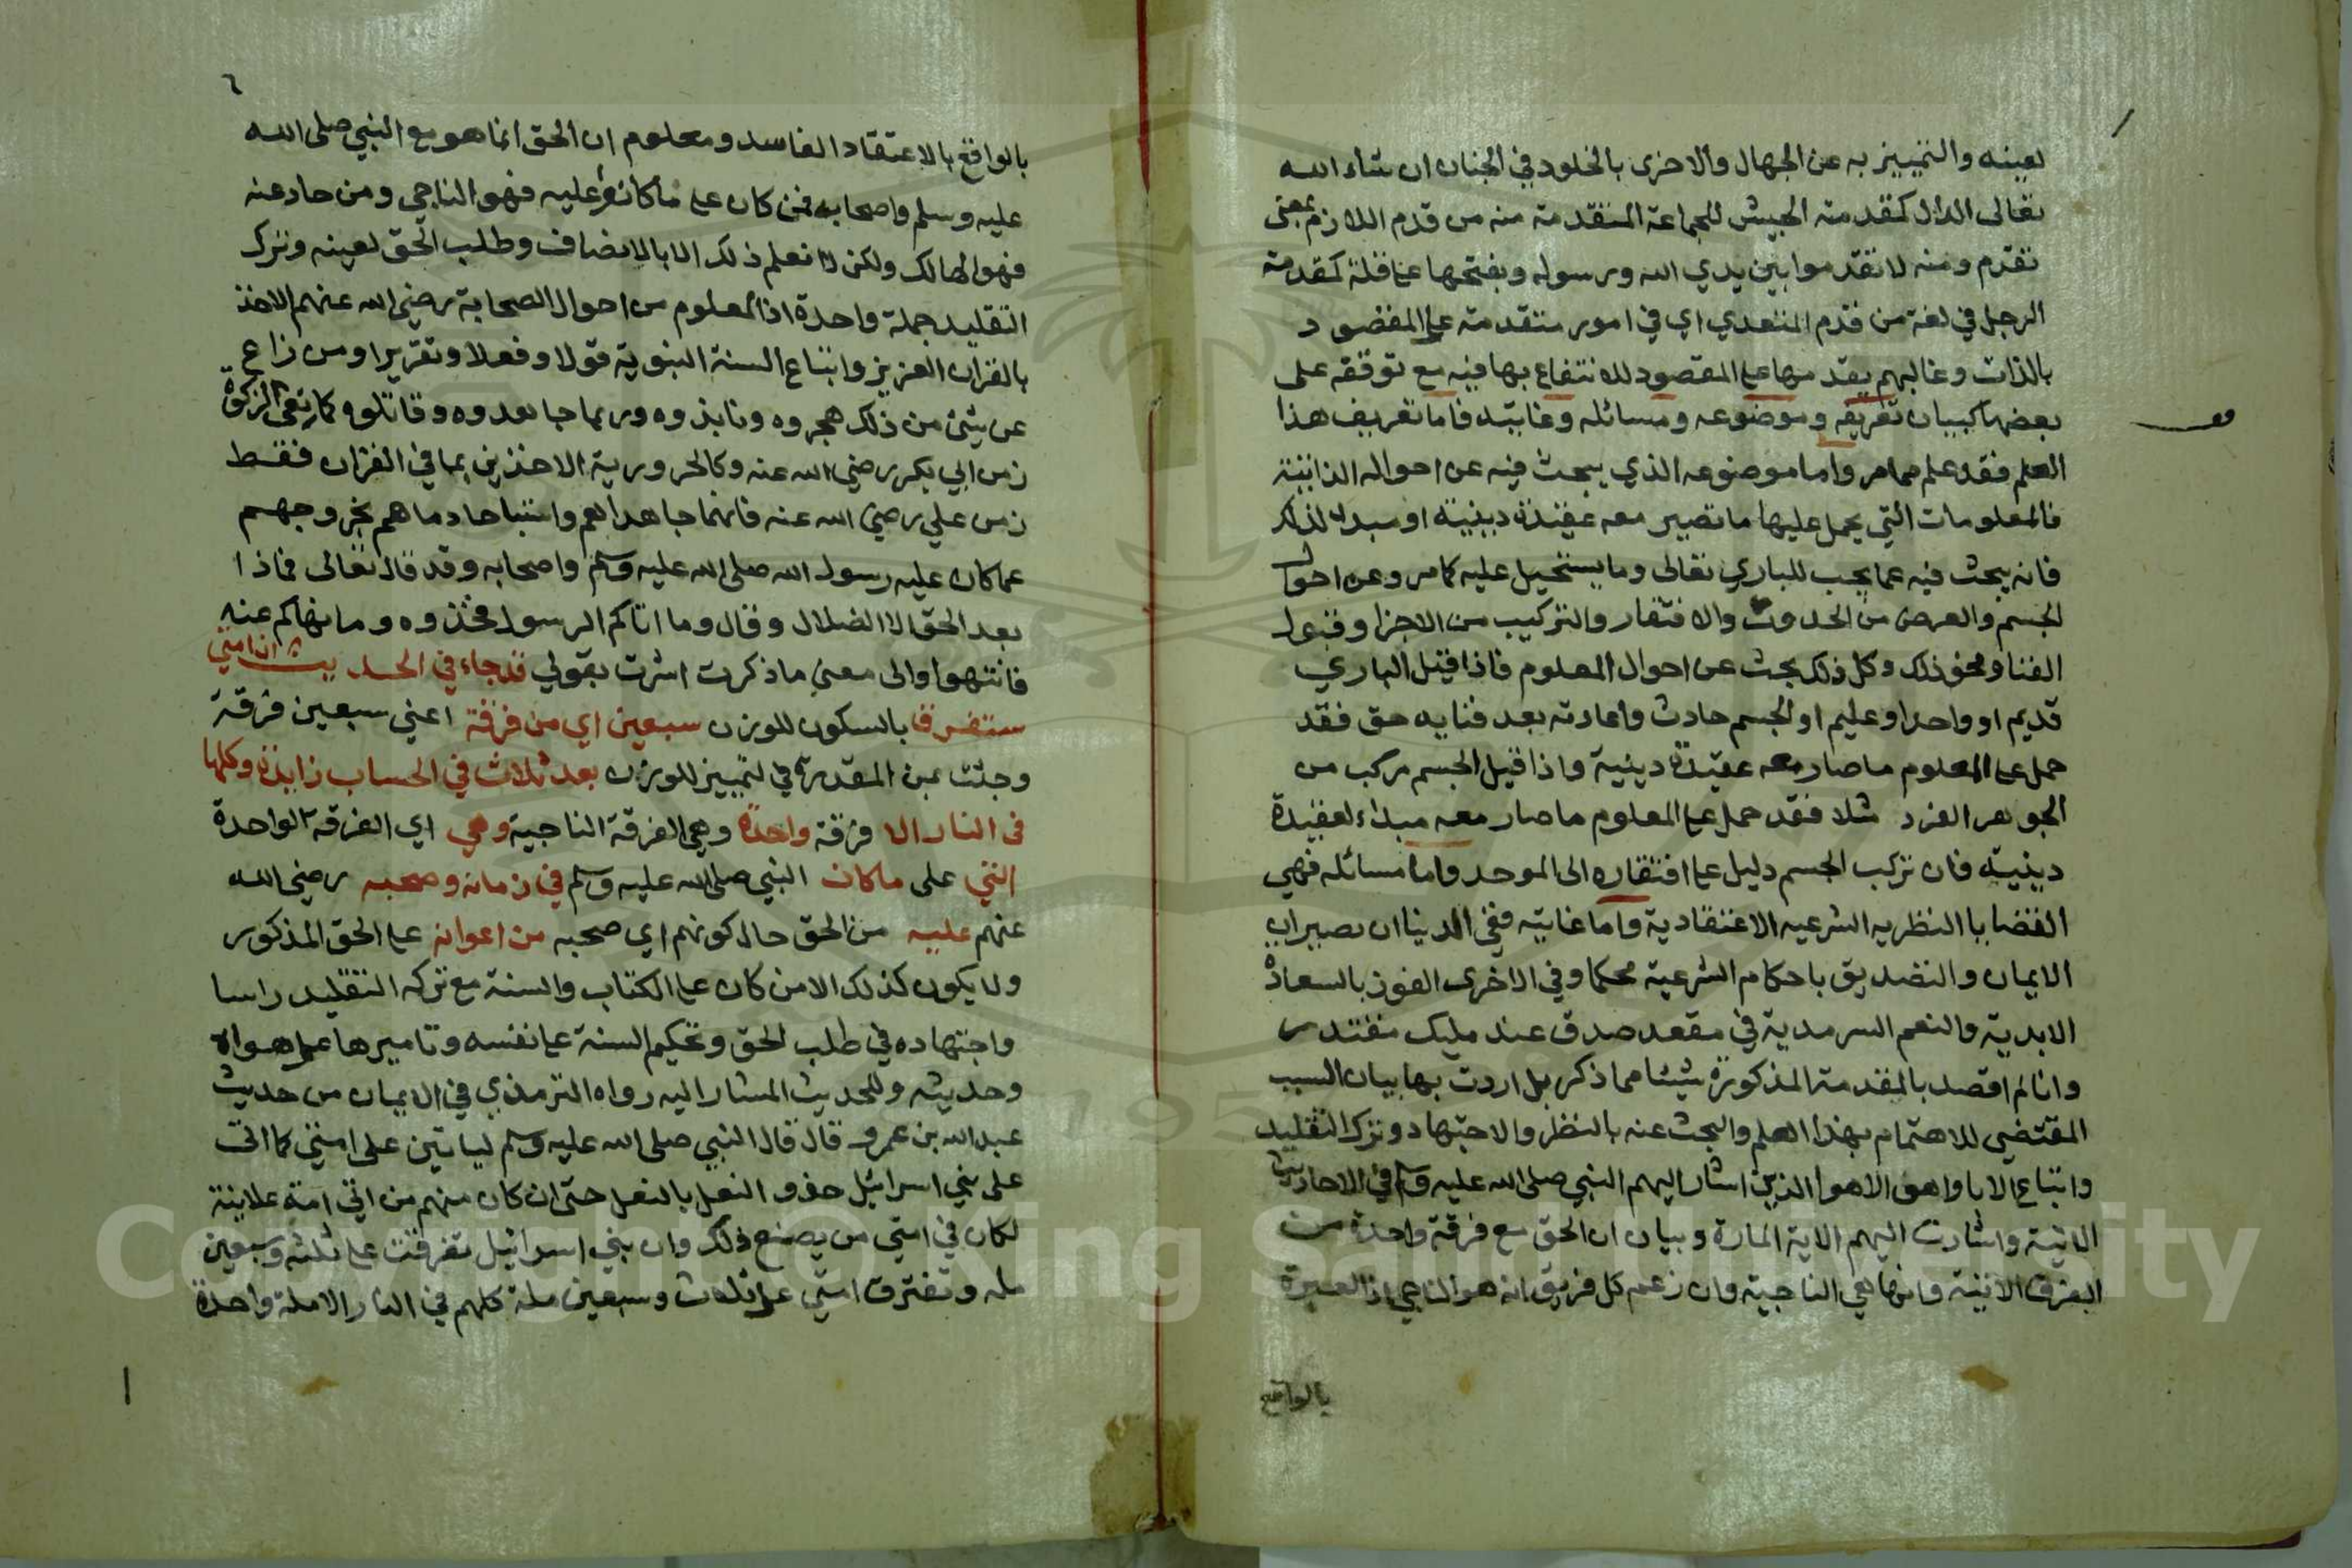 بعينه والتمييز به عن الجهال والاخرى بالخلود في الجنان ان شاء الله
تعالى الدال كمقدمة الجيش للجماعة المتقدمة منه من قدم اللازم بمعنى
تقدم ومنه لا تقدموا بين يدي الله ورسوله وبفتحها على قلة كمقدمة
الرجل في لغة من قدم المتعدي اي في امور متقدمة على المقصود
بالذات وغالبهم يقدمها على المقصود للانتفاع بها فيه مع توقفه على
بعضها كبيان تعريفه وموضوعه ومسائله وغايته فاما تعريف هذا
العلم فقد علم مما مر واما موضوعه الذي يبحث فيه عن احواله الذاتية
فالمعلومات التي يحمل عليها ما تصير معه عقيدة دينية او مبدا لذلك
فانه يبحث فيه عما يجب للباري تعالى وما يستحيل عليه كما مر وعن احوال
الجسم والعرض من الحدوث والافتقار والتركيب من الاجزا وقبول
الفنا ونحو ذلك وكل ذلك بحث عن احوال المعلوم فاذا قيل الباري
قديم او واحد او عليم او الجسم حادث واعادته بعد فنايه حق فقد
حمل على المعلوم ما صار معه عقيدة دينية واذا قيل الجسم مركب من
الجوهر الفرد مثلا فقد حمل على المعلوم ما صار معه مبداء لعقيدة
دينية فان تركب الجسم دليل على افتقاره الى الموجد واما مسائله فهي
القضايا النظريه الشرعيه الاعتقادية واما غايته ففي الدنيا ان يصير
الايمان والتصديق باحكام الشرعية محكما وفي الاخرى الفوز بالسعادة
الابدية والنعم السرمدية في مقعد صدق عند مليك مقتدر
وانا لم اقصد بالمقدمة المذكورة شيئا مما ذكر بل اردت بها بيان السبب
المقتضي للاهتمام بهذا العلم والبحث عنه بالنظر والاجتهاد وترك التقليد
واتباع الابا واهل الاهوا الذين اشار اليهم النبي صلى الله عليه وسلم في الاحاديث
الاتية واشارت اليهم الاية المارة وبيان ان الحق مع فرقة واحدة من
الفرق الاتية وانها هي الناجية وان زعم كل فريق انه هو الناجي اذ العبرة
بالواقع
٦
بالواقع بالاعتقاد الفاسد ومعلوم ان الحق انما هو مع النبي صلى الله
عليه وسلم واصحابه فمن كان على ما كانوا عليه فهو الناجي ومن حاد عنه
فهو الهالك ولكن لا نعلم ذلك الا بالانصاف وطلب الحق لعينه وترك
التقليد جملة واحدة اذ المعلوم من احوال الصحابة رضي الله عنهم الاخذ
بالقران العزيز واتباع السنة النبوية قولا وفعلا وتقريرا ومن زاع
عن شيئ من ذلك هجروه ونابذوه وربما جاهدوه وقاتلوه كمانعي الزكوة
زمن ابي بكر رضي الله عنه وكالحرورية الاخذين بما في القران فقط
زمن علي رضي الله عنه فانهما جاهداهم واستباحا دماهم بخروجهم
عما كان عليه رسول الله صلى الله عليه وسلم واصحابه وقد قال تعالى فماذا
بعد الحق الا الضلال وقال وما اتاكم الرسول فخذوه وما نهاكم عنه
فانتهوا والى معنى ما ذكرت اشرت بقولي قد جاء في الحديث ان امتي
ستفرق بالسكون للوزن سبعين اي من فرقة اعني سبعين فرقة
وجئت بمن المقدرة في التمييز للوزن بعد ثلاث في الحساب زايدة وكلها
في النار الا فرقة واحدة وهي الفرقة الناجية وهي اي الفرقة الواحدة
التي على ما كان النبي صلى الله عليه وسلم في زمانه وصحبه رضي الله
عنهم عليه من الحق حال كونهم اي صحبه من اعوانه على الحق المذكور
ولا يكون كذلك الا من كان على الكتاب والسنة مع تركه التقليد راسا
واجتهاده في طلب الحق وتحكيم السنة على نفسه وتاميرها على هواه
وحديثه وللحديث المشار اليه رواه الترمذي في الايمان من حديث
عبد الله بن عمرو قال قال النبي صلى الله عليه وسلم لياتين على امتي كما اتى
على بني اسرائيل حذو النعل بالنعل حتى ان كان منهم من اتى امه علانية
لكان في امتي من يصنع ذلك وان بني اسرائيل تفرقت على ثلثه وسبعين
مله وتفترق امتي على ثلاث وسبعين ملة كلهم في النار الا ملة واحدة
Copyright © King Saud University
1957